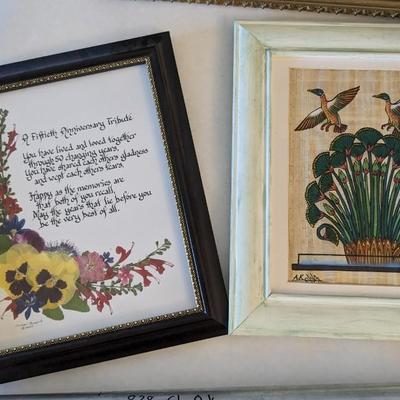 A Fiftieth Anniversary Tribute
You have lived and loved together
through 50 changing years,
You have shared each others gladness
and wept each others tears.
Happy as the memories are
that both of you recall,
May the years that lie before you
be the very best of all.